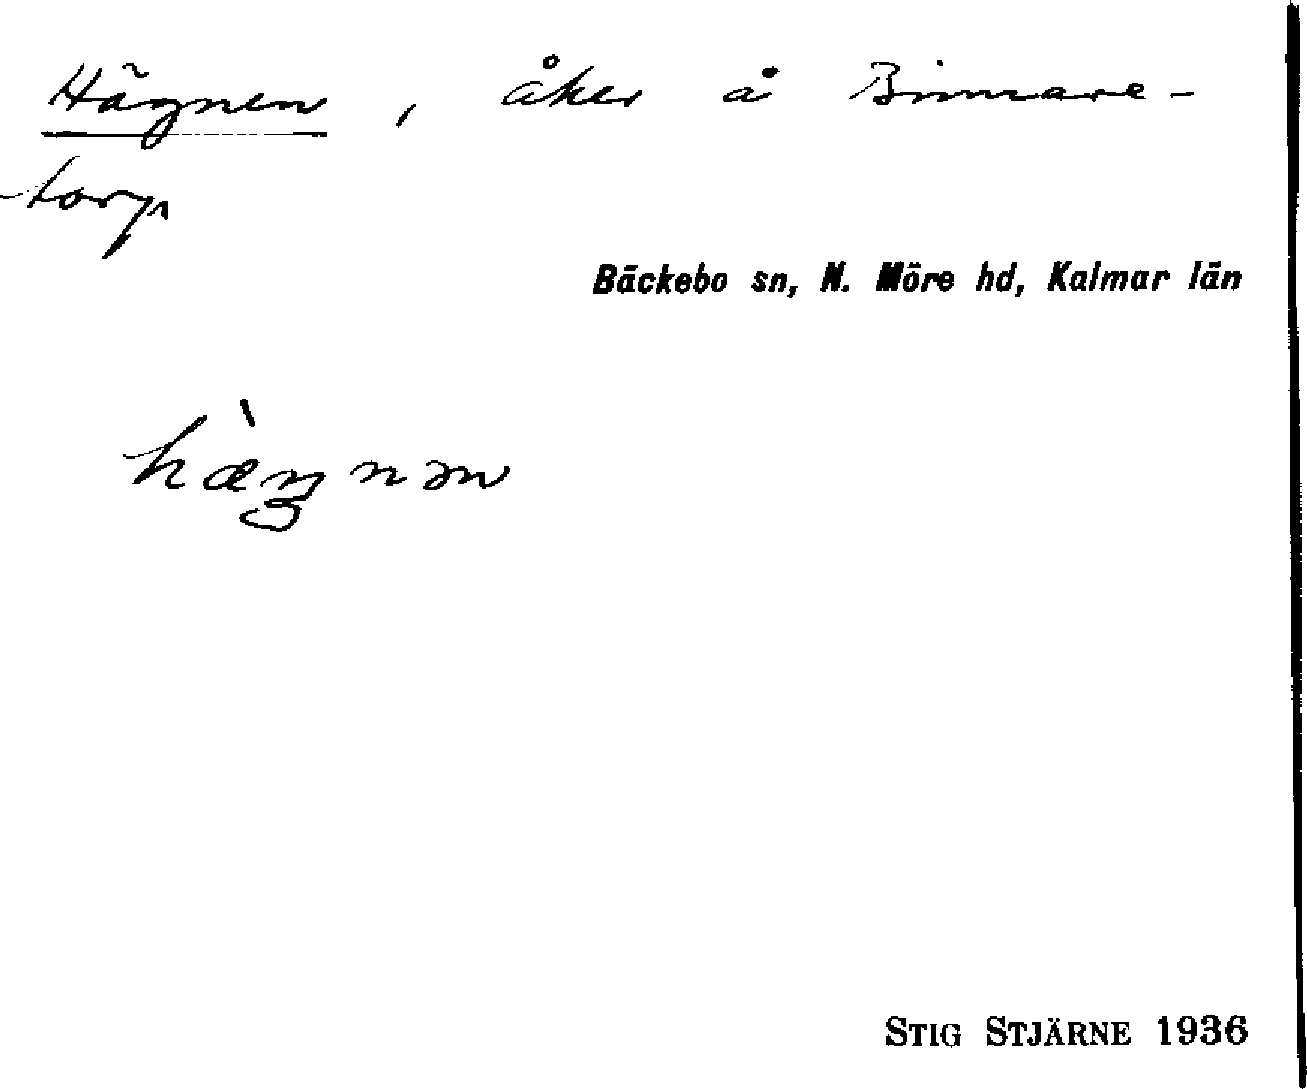 Hägnen, åker å Binnare-
torp
Bäckebo sn, N. Möre hd, Kalmar län
hæ̀ŋnən
STIG STJÄRNE 1936